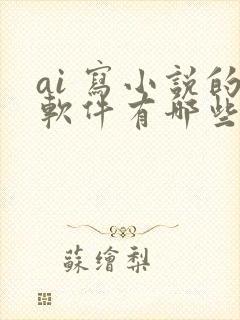 ai 寫小說的
軟件有哪些
蘇繪梨